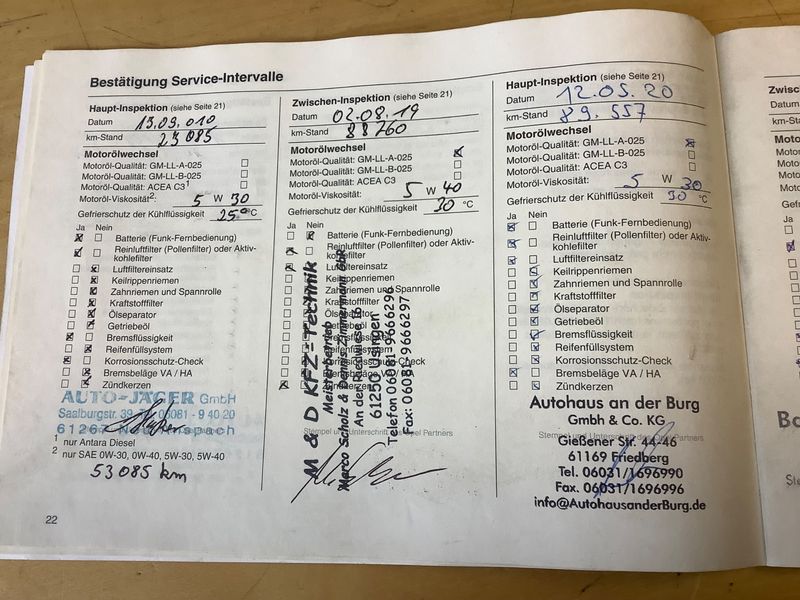 Bestätigung Service-Intervalle
Haupt-Inspektion (siehe Seite 21)
Datum 13.09.010
km-Stand 23085
Motorölwechsel
Motoröl-Qualität: GM-LL-A-025
Motoröl-Qualität: GM-LL-B-025
Motoröl-Qualität: ACEA C3¹
Motoröl-Viskosität²: 5 W 30
Gefrierschutz der Kühlflüssigkeit 25° °C
Ja Nein
Batterie (Funk-Fernbedienung)
Reinluftfilter (Pollenfilter) oder Aktiv-
kohlefilter
Luftfiltereinsatz
Keilrippenriemen
Zahnriemen und Spannrolle
Kraftstofffilter
Ölseparator
Getriebeöl
Bremsflüssigkeit
Reifenfüllsystem
Korrosionsschutz-Check
Bremsbeläge VA / HA
Zündkerzen
AUTO-JÄGER GmbH
Saalburgstr. 39 06081 - 9 40 20
¹ nur Antara Diesel
² nur SAE 0W-30, 0W-40, 5W-30, 5W-40
53085 km
22
Zwischen-Inspektion (siehe Seite 21)
Datum 02.08.19
km-Stand 88760
Motorölwechsel
Motoröl-Qualität: GM-LL-A-025
Motoröl-Qualität: GM-LL-B-025
Motoröl-Qualität: ACEA C3
Motoröl-Viskosität: 5 W 40
Gefrierschutz der Kühlflüssigkeit 30 °C
Ja Nein
Batterie (Funk-Fernbedienung)
Reinluftfilter (Pollenfilter) oder Aktiv-
kohlefilter
Luftfiltereinsatz
Keilrippenriemen
Zahnriemen und Spannrolle
Kraftstofffilter
Ölseparator
Getriebeöl
Bremsflüssigkeit
Reifenfüllsystem
Korrosionsschutz-Check
Bremsbeläge VA / HA
Zündkerzen
Stempel und Unterschrift des Opel Partners
M & D KFZ-Technik
Meisterbetrieb
Marco Scholz & Dennis Zimmermann GbR
An der Riedwiese 16
61250 Usingen
Telefon 06081-9666296
Fax: 06081-9666297
Haupt-Inspektion (siehe Seite 21)
Datum 12.05.20
km-Stand 89.557
Motorölwechsel
Motoröl-Qualität: GM-LL-A-025
Motoröl-Qualität: GM-LL-B-025
Motoröl-Qualität: ACEA C3
Motoröl-Viskosität: 5 W 30
Gefrierschutz der Kühlflüssigkeit 30 °C
Ja Nein
Batterie (Funk-Fernbedienung)
Reinluftfilter (Pollenfilter) oder Aktiv-
kohlefilter
Luftfiltereinsatz
Keilrippenriemen
Zahnriemen und Spannrolle
Kraftstofffilter
Ölseparator
Getriebeöl
Bremsflüssigkeit
Reifenfüllsystem
Korrosionsschutz-Check
Bremsbeläge VA / HA
Zündkerzen
Autohaus an der Burg
Gmbh & Co. KG
Stempel und Unterschrift des Opel Partners
Gießener Str. 44-46
61169 Friedberg
Tel. 06031/1696990
Fax. 06031/1696996
info@AutohausanderBurg.de
Zwisc
Datum
km-Stand
Motoröl